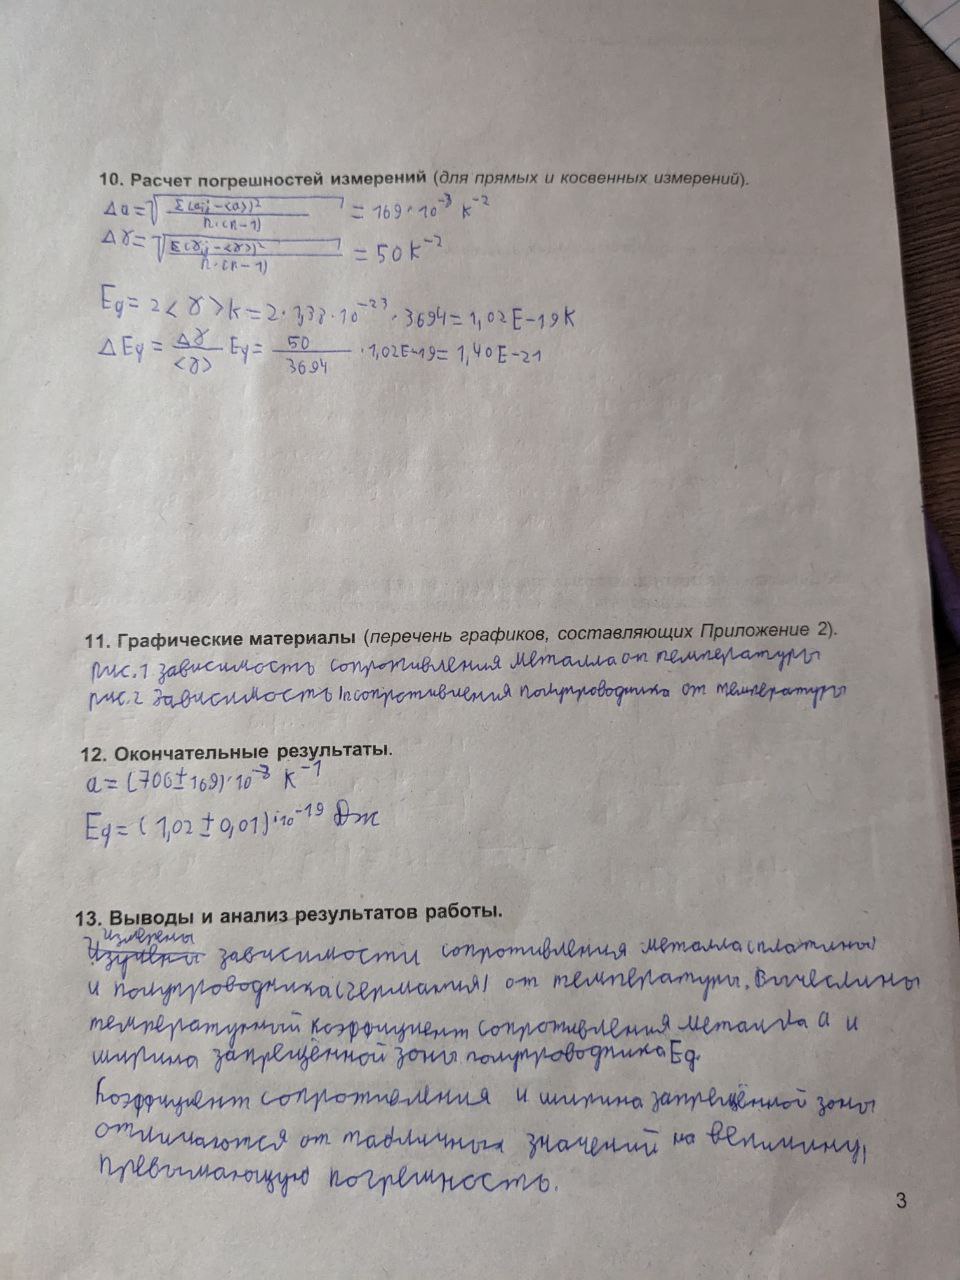 10. Расчет погрешностей измерений (для прямых и косвенных измерений).
Δa = √(Σ(aᵢⱼ - <a>)² / n·(n-1)) = 169·10⁻³ K⁻²
Δγ = √(Σ(γᵢⱼ - <γ>)² / n·(n-1)) = 50K⁻²
Eg = 2<γ>k = 2·,338·10⁻²³·3694 = 1,02E-19K
ΔEg = Δγ/<γ> Eg = 50/3694 · 1,02E-19 = 1,40E-21
11. Графические материалы (перечень графиков, составляющих Приложение 2).
рис.1 зависимость сопротивления металла от температуры
рис.2 зависимость ln сопротивления полупроводника от температуры
12. Окончательные результаты.
a = (706 ± 169)·10⁻³ K⁻¹
Eg = (1,02 ± 0,01)·10⁻¹⁹ Дж
13. Выводы и анализ результатов работы.
измерены
Изучены зависимости сопротивления металла (платины)
и полупроводника (германия) от температуры. Вычеслины
температурный коэффициент сопротивления металла a и
ширина запрещённой зоны полупроводника Eg.
Коэффициент сопротивления и ширина запрещённой зоны
отличаются от табличных значений на величину,
превышающую погрешность.
3